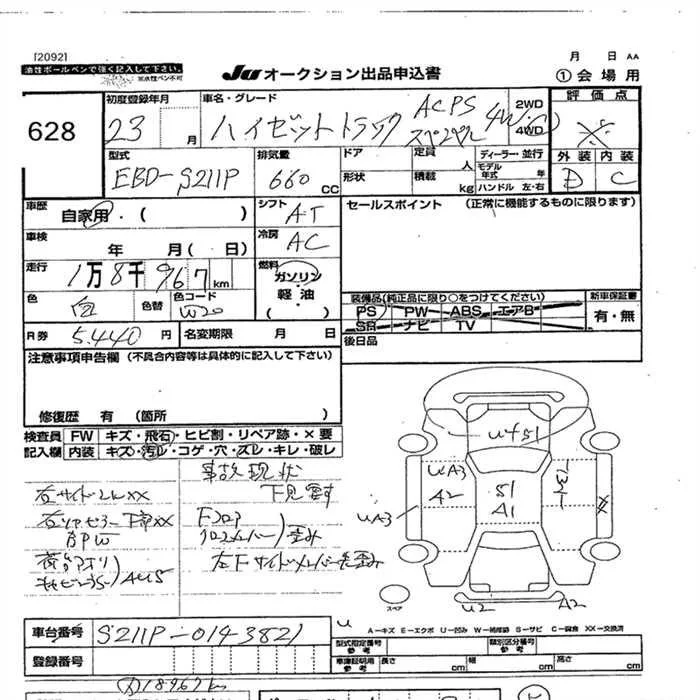 [2092]
油性ボールペンで強く記入して下さい。
※水性ペン不可
JU オークション出品申込書
月 日 AA
① 会場用
628
初度登録年月
23 月
車名・グレード
ハイゼットトラック
ACPS
スペシャル
4W.D
2WD
4WD
評価点
外装 内装
D C
型式
EBD-S211P
排気量
660 CC
ドア
形状
定員 人
積載 kg
ディーラー・並行
モデル
年式 年
ハンドル 左・右
車歴
自家用・( )
シフト
AT
セールスポイント (正常に機能するものに限ります)
車検
年 月( 日)
冷房
AC
走行
1万8千967 km
燃料
ガソリン
軽油
( )
色
白
色替
色コード
W20
装備品(純正品に限り○をつけてください)
PS PW ABS エアB
SR ナビ TV
新車保証書
有・無
R券
5.440 円
名変期限 月 日
後日品
注意事項申告欄 (不具合内容等は具体的に記入して下さい)
修復歴 有 (箇所 )
検査員 FW キズ・飛石・ヒビ割・リペア跡・×要
記入欄 内装 キズ・汚レ・コゲ・穴・ズレ・キレ・破レ
事故現状
下見要す
右サイドシルXX
Fフロア
クロスメンバー)歪み
左Fサイドメンバー先歪み
AU5
U451
UA3
A2
S1
A1
UA3
XX
スペア
U2
A2
U
A=キズ E=エクボ U=凹み W=補修跡 S=サビ C=腐食 XX=交換済
車台番号
S211P-0143821
登録番号
型式指定番号
参考
類別区分番号
参考
車庫証明用
参考
長さ cm
幅 cm
高さ cm
18967km